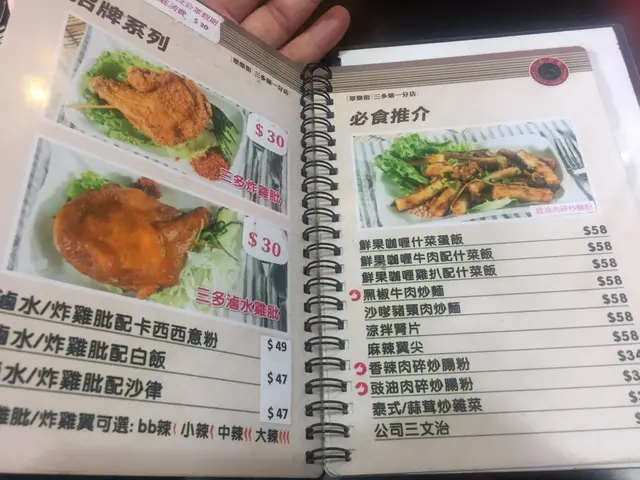 招牌系列
$30
$30
三多炸雞肶
$30
三多滷水雞肶
滷水/炸雞肶配卡西西意粉
$49
滷水/炸雞肶配白飯
$47
滷水/炸雞肶配沙律
$47
雞肶/炸雞翼可選: bb辣 小辣 中辣 大辣
翠樂街 三多第一分店
翠樂街 三多第一分店
必食推介
豉油肉碎炒腸粉
鮮果咖喱什菜蛋飯 $58
鮮果咖喱牛肉配什菜飯 $58
鮮果咖喱雞扒配什菜飯 $58
黑椒牛肉炒麵 $58
沙嗲豬頸肉炒麵 $58
涼拌腎片 $58
麻辣翼尖 $58
香辣肉碎炒腸粉
豉油肉碎炒腸粉
泰式/蒜茸炒雜菜
公司三文治